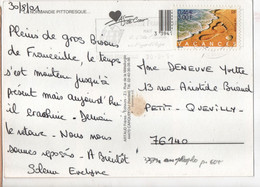 30/8/01
NORMANDIE PITTORESQUE
VACANCES
Pleins de gros bisous
de Franceville, le temps
s'est maintenu jusqu'à
présent mais aujourd'hui
il crachine - Demain
le retour - Nous nous
sommes reposés - A Bientôt
Solenn Evelyne
Mme DENEUVE Yvette
13 rue Aristide Briand
PETIT - QUEVILLY
76140